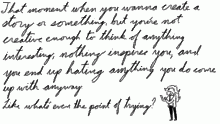 That moment when you wanna create a
story or something, but you're not
creative enough to think of anything
interesting, nothing inspires you, and
you end up hating anything you do come
up with anyway
Like what's even the point of trying?